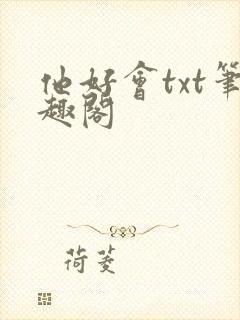 他好會txt筆
趣閣
荷菱